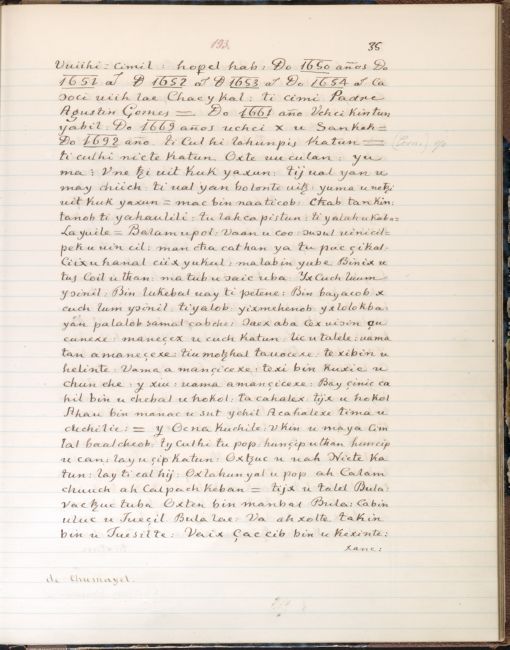 193.
35
Uuiihi = cimil : hopel hab : Do 1650 años Do
1651 aĨ Đ 1652 aĨ Đ 1653 aĨ Do 1654 aĨ Ca
ɔoci uiih lae Chac y kal : ti cimi Padre
Agustin Gomes = Do 1661 año Uchci kintun
yabil : Do 1669 años uchci x u Sankah =
Do 1692 año ti Culhi lahunpis Katun =
ti culhi nicte katun Oxte uu culan : yu
ma : Vne ti uit kuk yaxun : tij ual yan u
may chiich : ti ual yan bolonte uitz : yuma u netzi
uit kuk yaxun = mac bin naaticob : Chab tan kin :
tanob ti yahaulili : tu lah ca pistun : ti yalah u
La yuile = Balam u pol : Vaan u coo : ɔuɔul uinicil =
pek u uincil : man cha cathan ya tu puc çikal :
Ciix u hanal ciix y ukul : malabin yube Binix u
tus Coil u than : ma tub u ɔaic uba : Yx Cuch luum
yɔinil : Bin lukebal uay ti petene : Bin bayacob x
cuch lum yɔinil : ti yalob yixmehenob yx lolokba :
yan palalob samal çabche : ɔaex aba Cex uiɔin
cunexe : maneçex u cuch katun : Uc u talele : uama
tan a maneçexe : tiu motzhal tauocexe : texi bin u
helinte : Vama a mançicexe : texi bin kuxic u
chun che : y xiu : uama a mançicexe : Bay çinic ca
hil bin u chebal u hokol : ta cahalex : tijx u hokol
Ahau bin manac u sut ychil A cahalexe tima u
duchilie : = y Ocna kuchile : V kin u maya cim
lal baalcheob : ty culhi tu pop : hunçip utkan huncip
u can : lay u çip katun : Oxtzuc u uah Nicte ka
tun : lay ti cal hij : Oxlahun yal u pop ah Calam
chuuch ah Calpach keban = tijx u talel Bula :
Vac tzuc tuba Oxten bin manbal Bula : Cabin
uluc u Tuzçil Bula lae : Va ah xotte takin
bin u Tuesilte : Vaix Çac cib bin u kexinte :
xane :
de Chumayel.